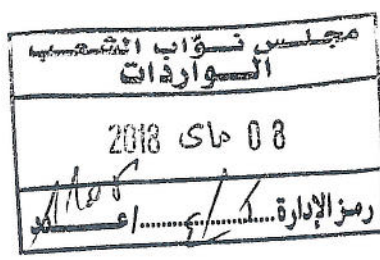 مجلس نواب الشعب
الواردات
08 ماي 2018
رمز الإدارة ......../........ اعـــدد